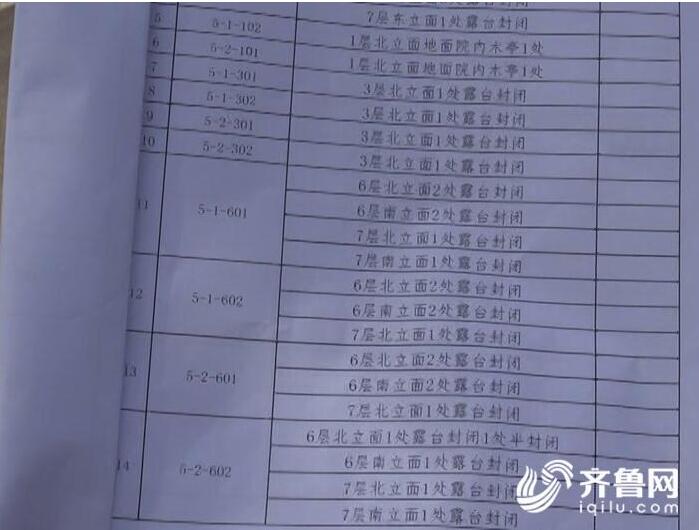 7层东立面1处露台封闭
5 5-1-102 1层北立面地面院内木亭1处
6 5-2-101 1层北立面地面院内木亭1处
7 5-1-301 3层北立面1处露台封闭
8 5-1-302 3层北立面1处露台封闭
9 5-2-301 3层北立面1处露台封闭
10 5-2-302 3层北立面1处露台封闭
11 5-1-601 6层北立面2处露台封闭
6层南立面2处露台封闭
7层北立面1处露台封闭
7层南立面1处露台封闭
12 5-1-602 6层北立面2处露台封闭
6层南立面2处露台封闭
7层北立面1处露台封闭
13 5-2-601 6层北立面2处露台封闭
6层南立面2处露台封闭
7层北立面1处露台封闭
14 5-2-602 6层北立面1处露台封闭1处半封闭
6层南立面1处露台封闭
7层北立面1处露台封闭
7层南立面1处露台封闭
齐鲁网
iqilu.com